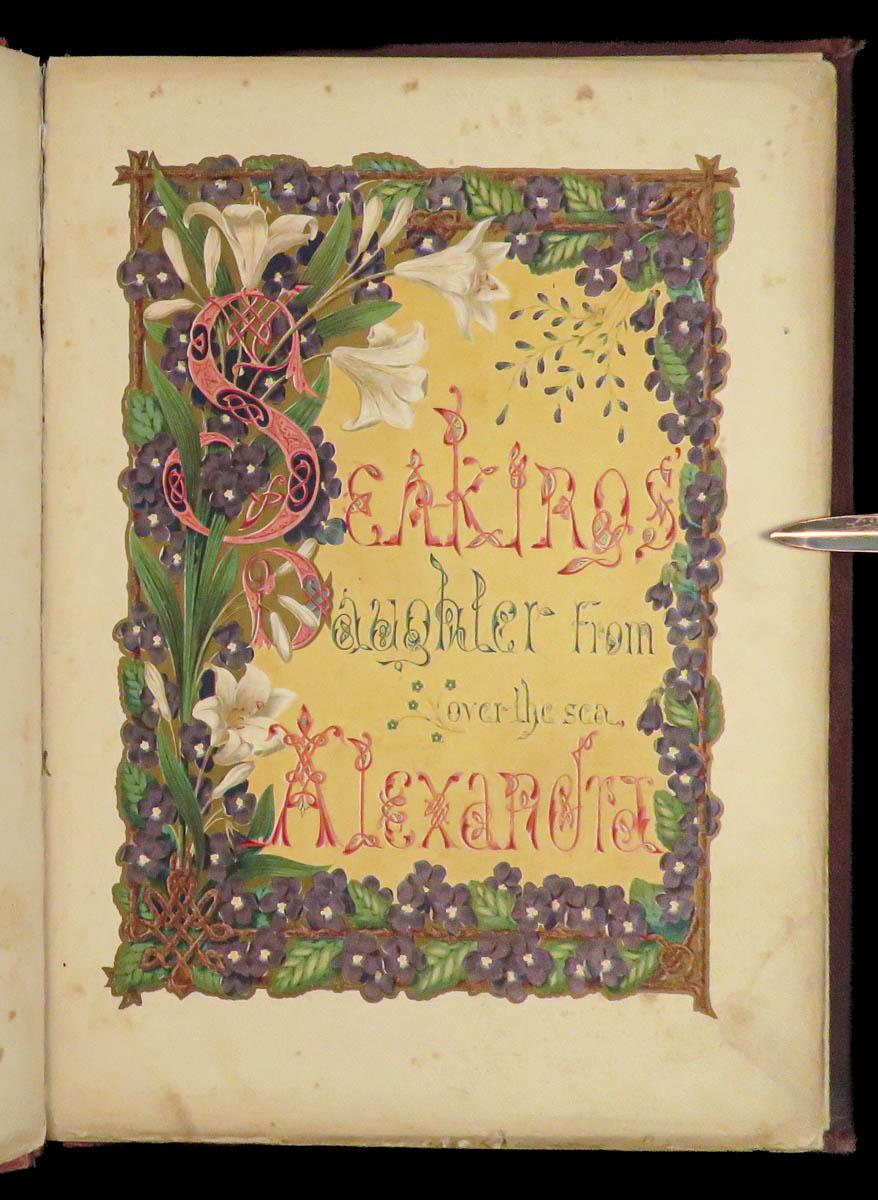 Seakings'
Daughter from
over the sea,
Alexandra